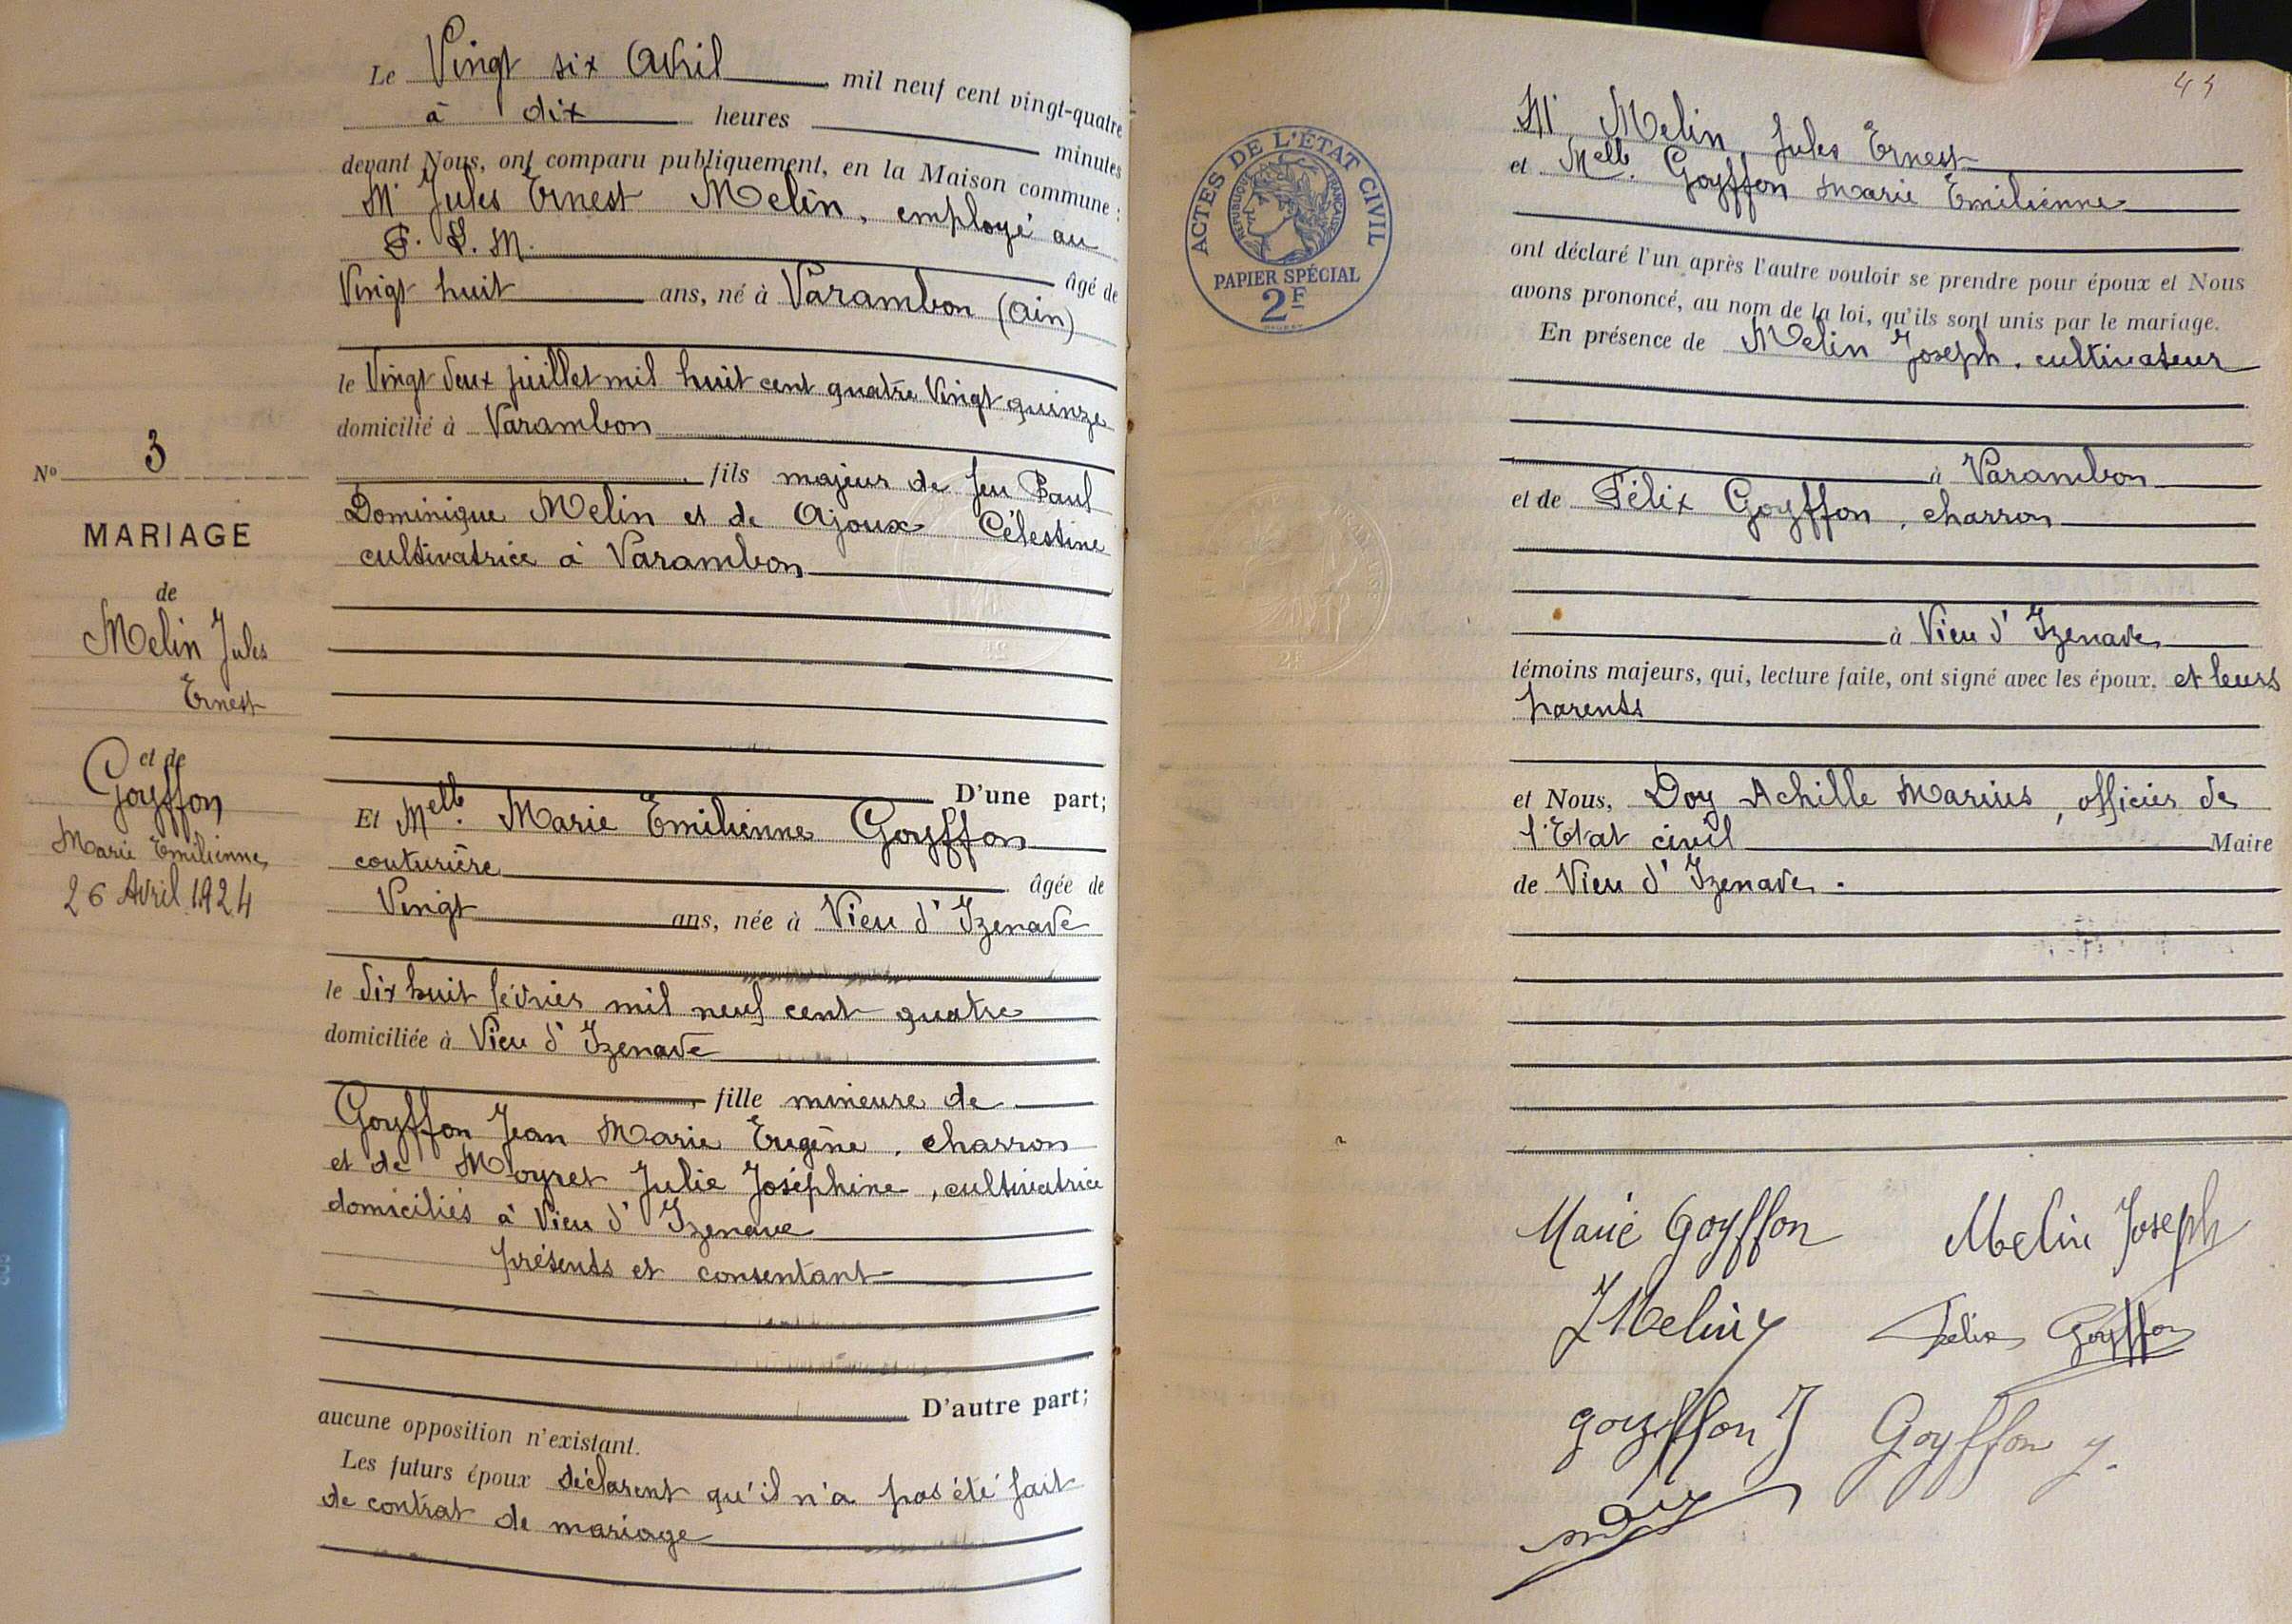 Le Vingt six Avril, mil neuf cent vingt-quatre
à dix heures minutes
devant Nous, ont comparu publiquement, en la Maison commune :
Mr Jules Ernest Melin, employé au
P. L. M. âgé de
Vingt huit ans, né à Varambon (Ain)
le Vingt deux juillet mil huit cent quatre Vingt quinze
domicilié à Varambon
, fils majeur de feu Paul
Dominique Melin et de Ajoux Célestine
cultivatrice à Varambon
D'une part;
Et Melle. Marie Emilienne Goyffon
couturière, âgée de
Vingt ans, née à Vieu d'Izenave
le dix huit février mil neuf cent quatre
domiciliée à Vieu d'Izenave
, fille mineure de
Goyffon Jean Marie Eugène, charron
et de Moyret Julie Joséphine, cultivatrice
domiciliés à Vieu d'Izenave
présents et consentant
D'autre part;
aucune opposition n'existant.
Les futurs époux déclarent qu'il n'a pas été fait
de contrat de mariage
No 3
MARIAGE
de
Melin Jules
Ernest
et de
Goyffon
Marie Emilienne
26 Avril 1924
ACTES DE L'ÉTAT CIVIL
REPUBLIQUE FRANÇAISE
PAPIER SPÉCIAL
2F
2F
Mr Melin Jules Ernest
et Melle. Goyffon Marie Emilienne
ont déclaré l'un après l'autre vouloir se prendre pour époux et Nous
avons prononcé, au nom de la loi, qu'ils sont unis par le mariage.
En présence de Melin Joseph, cultivateur
à Varambon
et de Félix Goyffon, charron
à Vieu d'Izenave
témoins majeurs, qui, lecture faite, ont signé avec les époux, et leurs
parents
et Nous, Doy Achille Marius, officier de
l'Etat civil Maire
de Vieu d'Izenave.
Marie Goyffon Melin Joseph
J Melin Félix Goyffon
goyffon J Goyffon